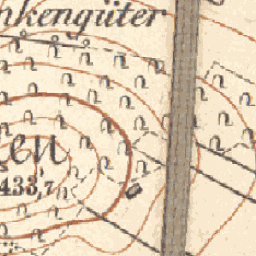 nkengüter
en
433,7